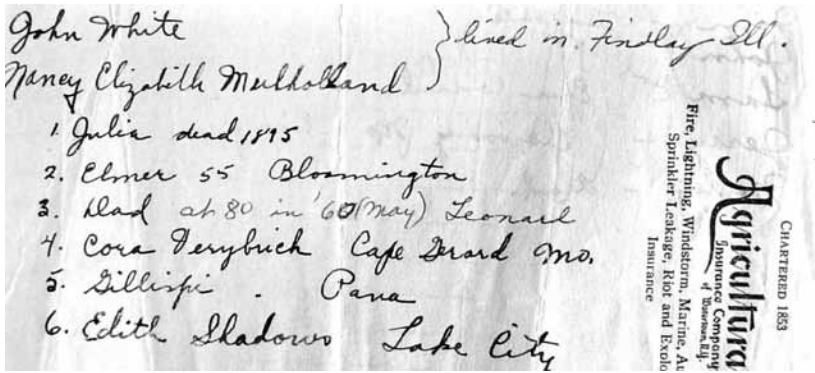 John White } lived in Findlay Ill.
Nancy Elizabeth Mulholland
1. Julia dead 1895
2. Elmer 55 Bloomington
3. Dad at 80 in '60 (May) Leonard
4. Cora Cape Gerard Mo.
5. Gillispi . Pana
6. Edith Shadows Lake City
CHARTERED 1853
Agricultura
Insurance Company
of Watertown, N.Y.
Fire, Lightning, Windstorm, Marine, Au
Sprinkler Leakage, Riot and Explo
Insurance